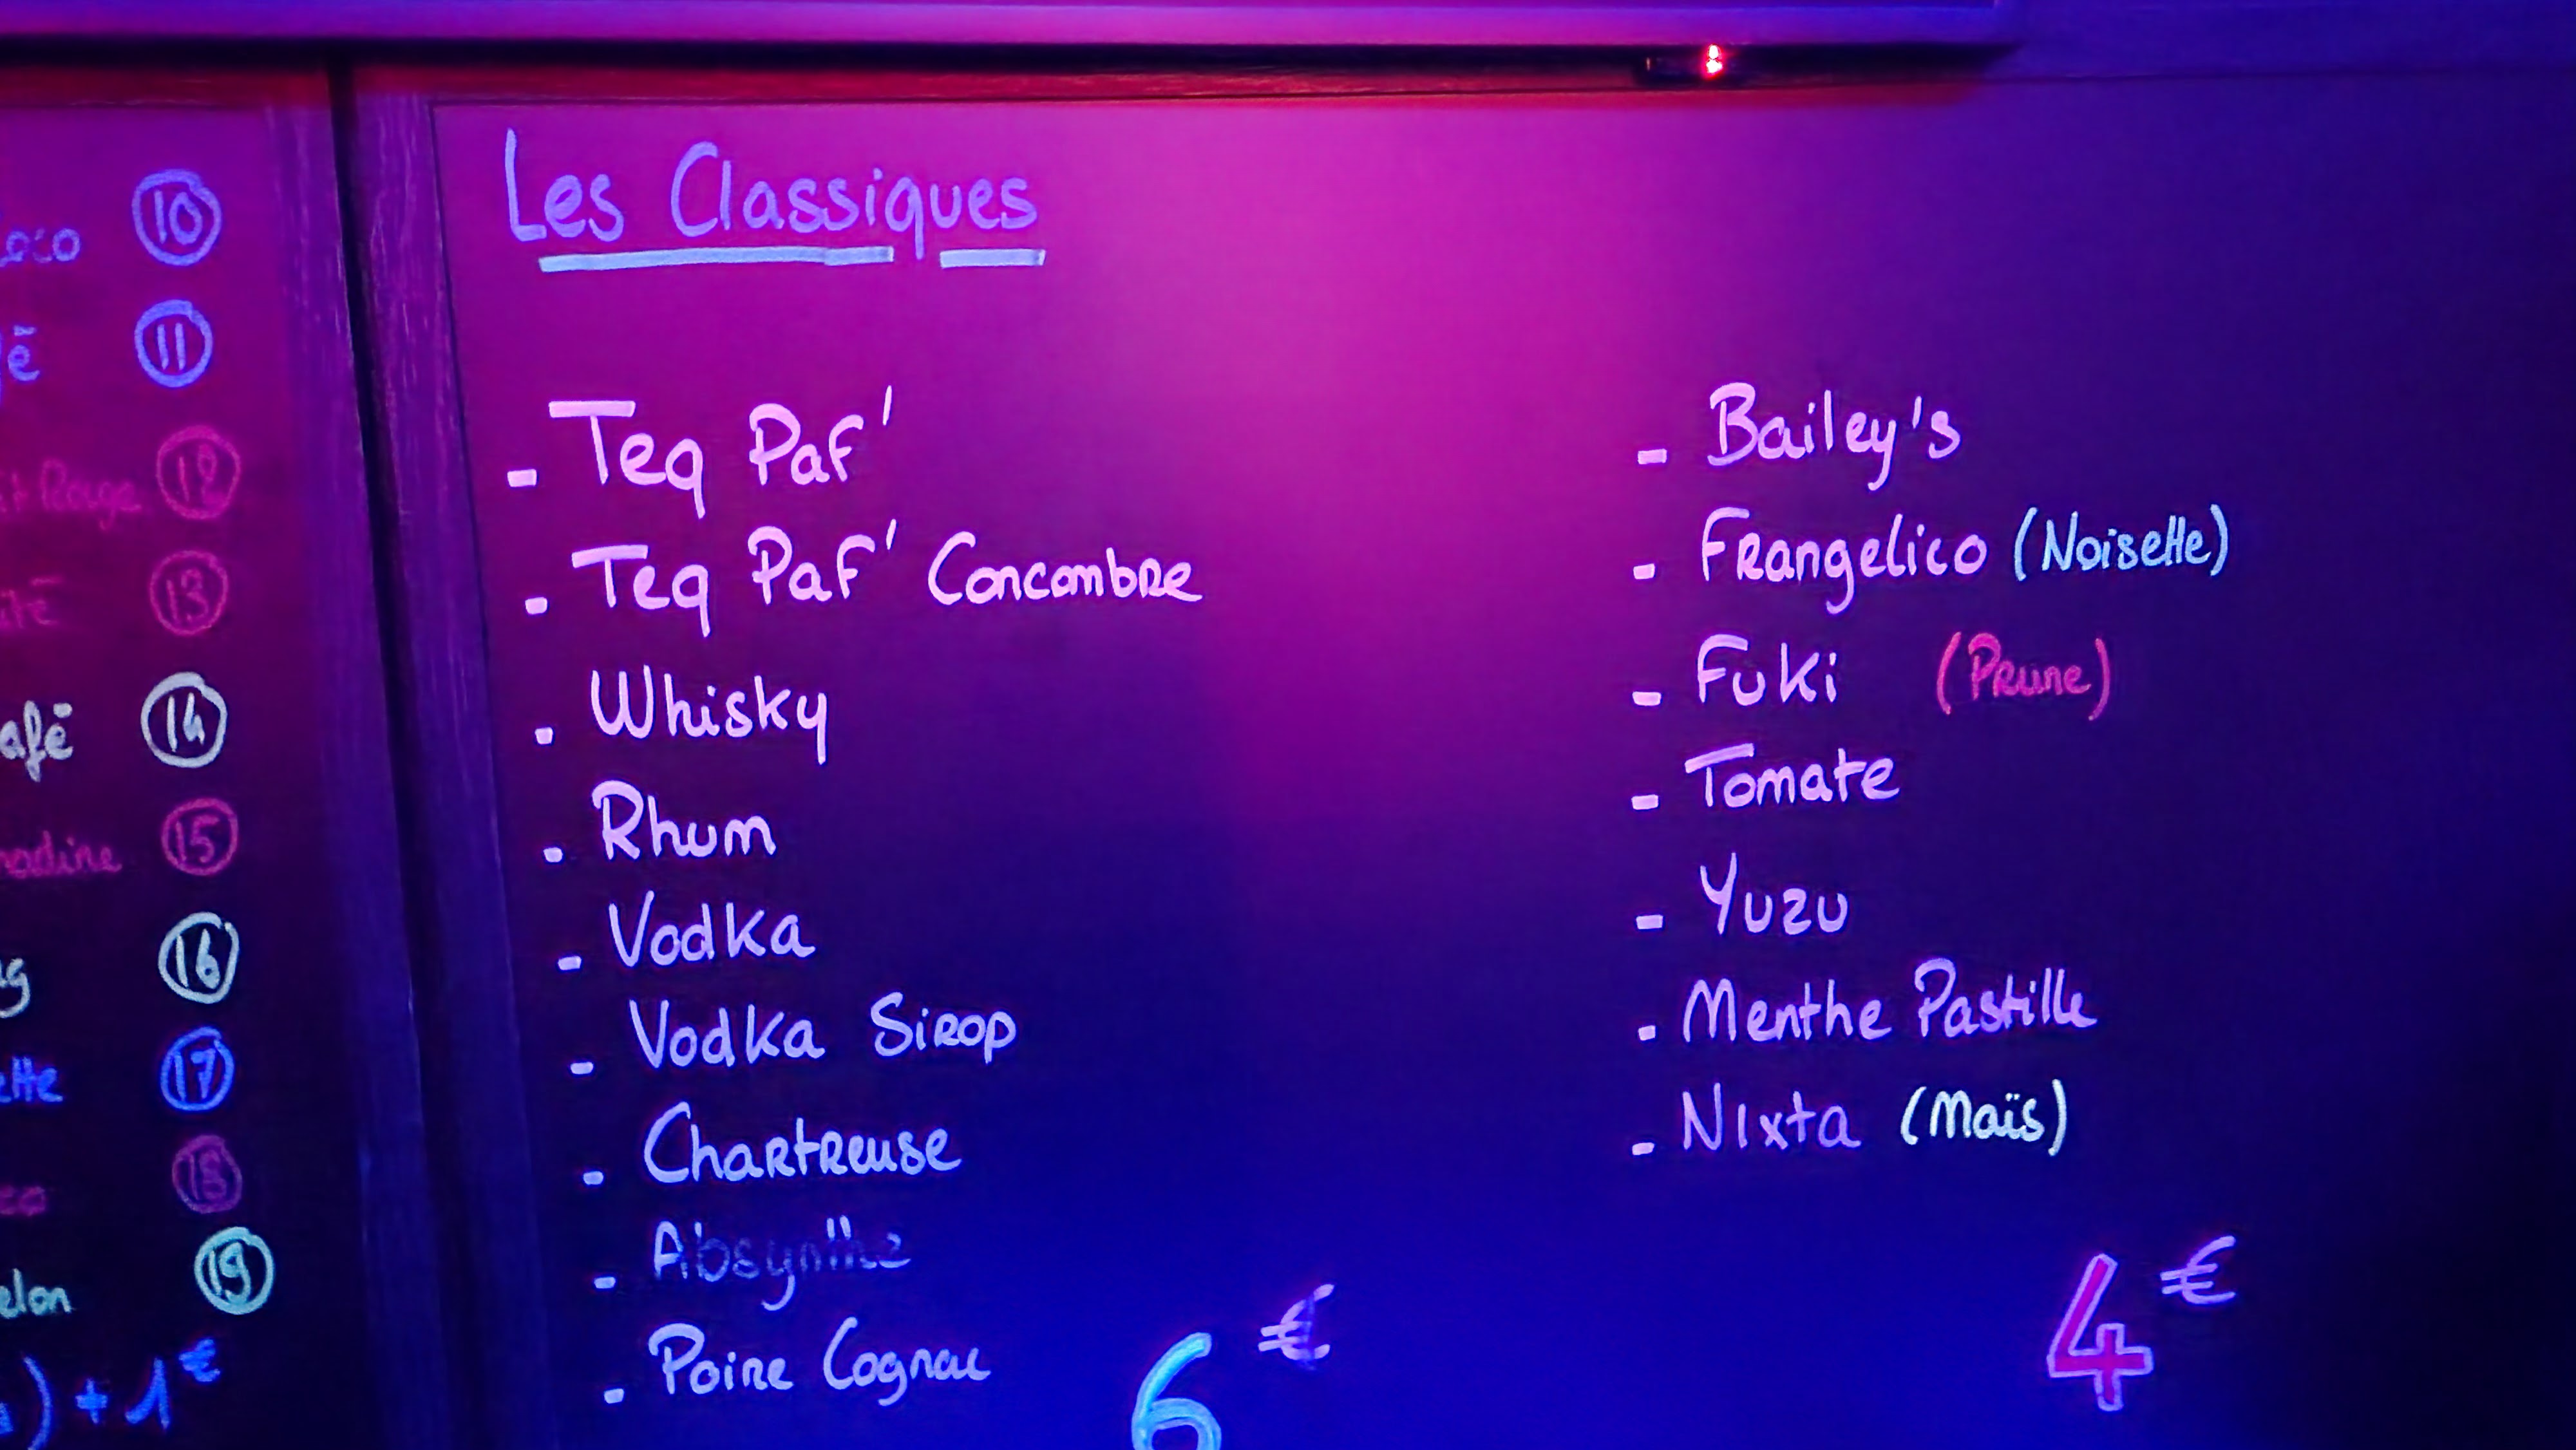 Les Classiques
- Teq Paf'
- Teq Paf' Concombre
- Whisky
- Rhum
- Vodka
- Vodka Sirop
- Chartreuse
- Absynthe
- Poire Cognac
6€
- Bailey's
- Frangelico (Noisette)
- Fuki (Prune)
- Tomate
- Yuzu
- Menthe Pastille
- Nixta (Maïs)
4€
10
11
Rouge 12
13
14
15
16
17
18
19
) + 1€